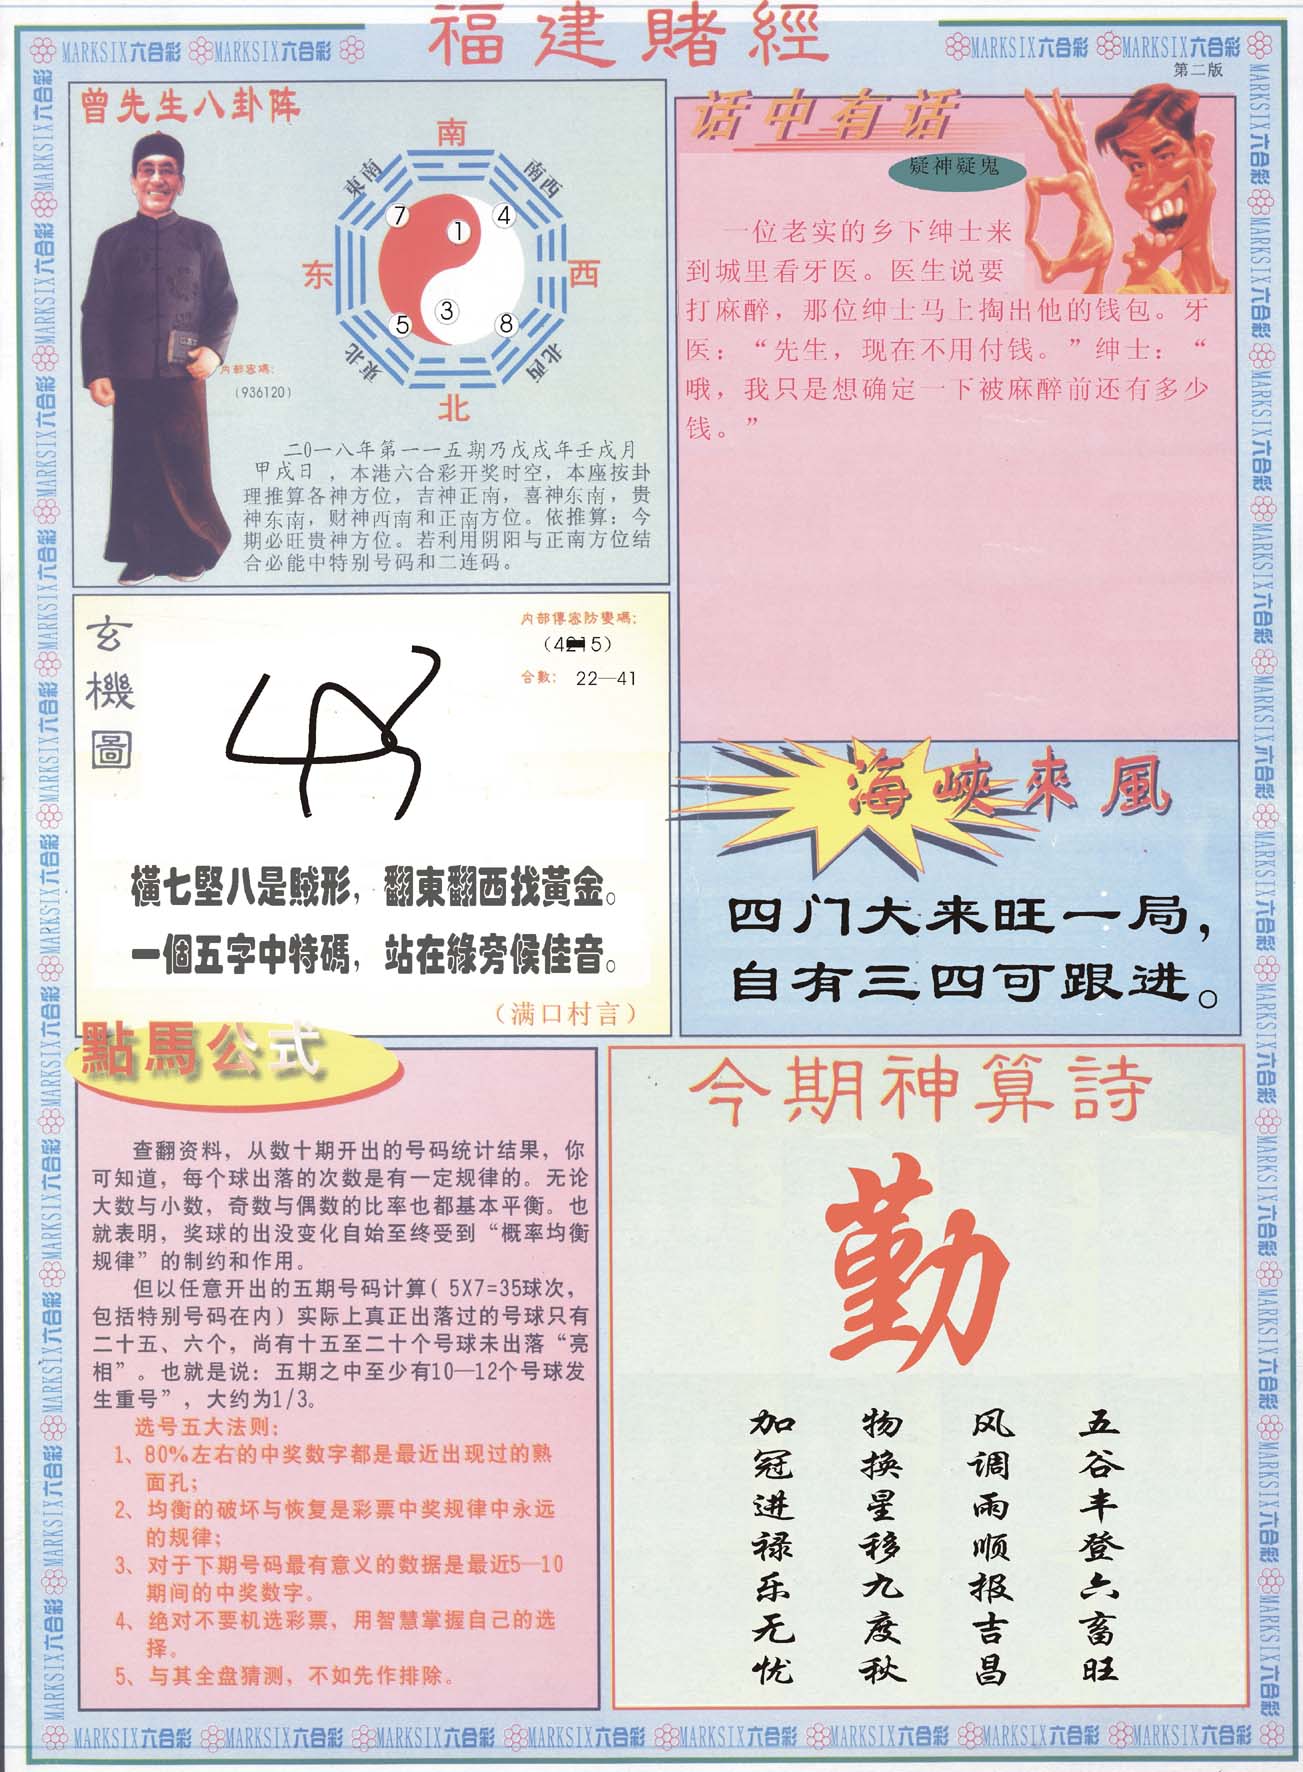 福建賭經
MARKSIX六合彩 MARKSIX六合彩
MARKSIX六合彩 MARKSIX六合彩
第二版
曾先生八卦阵
南
東南
南西
7
1
4
东
西
5
3
8
東北
北西
北
内部密碼:
(936120)
二0一八年第一一五期乃戊戌年壬戌月
甲戌日，本港六合彩开奖时空，本座按卦
理推算各神方位，吉神正南，喜神东南，贵
神东南，财神西南和正南方位。依推算：今
期必旺贵神方位。若利用阴阳与正南方位结
合必能中特别号码和二连码。
话中有话
疑神疑鬼
一位老实的乡下绅士来
到城里看牙医。医生说要
打麻醉，那位绅士马上掏出他的钱包。牙
医：“先生，现在不用付钱。”绅士：“
哦，我只是想确定一下被麻醉前还有多少
钱。”
玄機圖
内部傳密防變碼:
合數: 22—41
橫七堅八是賊形，翻東翻西找黃金。
一個五字中特碼，站在綠旁候佳音。
（满口村言）
海峽來風
四门大来旺一局，
自有三四可跟进。
點馬公式
查翻资料，从数十期开出的号码统计结果，你
可知道，每个球出落的次数是有一定规律的。无论
大数与小数，奇数与偶数的比率也都基本平衡。也
就表明，奖球的出没变化自始至终受到“概率均衡
规律”的制约和作用。
但以任意开出的五期号码计算( 5X7=35球次，
包括特别号码在内）实际上真正出落过的号球只有
二十五、六个，尚有十五至二十个号球未出落“亮
相”。也就是说：五期之中至少有10—12个号球发
生重号”，大约为1/3。
选号五大法则:
1、80%左右的中奖数字都是最近出现过的熟
面孔;
2、均衡的破坏与恢复是彩票中奖规律中永远
的规律;
3、对于下期号码最有意义的数据是最近5—10
期间的中奖数字。
4、绝对不要机选彩票，用智慧掌握自己的选
择。
5、与其全盘猜测，不如先作排除。
今期神算詩
勤
五谷丰登六畜旺
风调雨顺报吉昌
物换星移九度秋
加冠进禄乐无忧
MARKSIX六合彩 MARKSIX六合彩 MARKSIX六合彩 MARKSIX六合彩 MARKSIX六合彩 MARKSIX六合彩 MARKSIX六合彩 MARKSIX六合彩